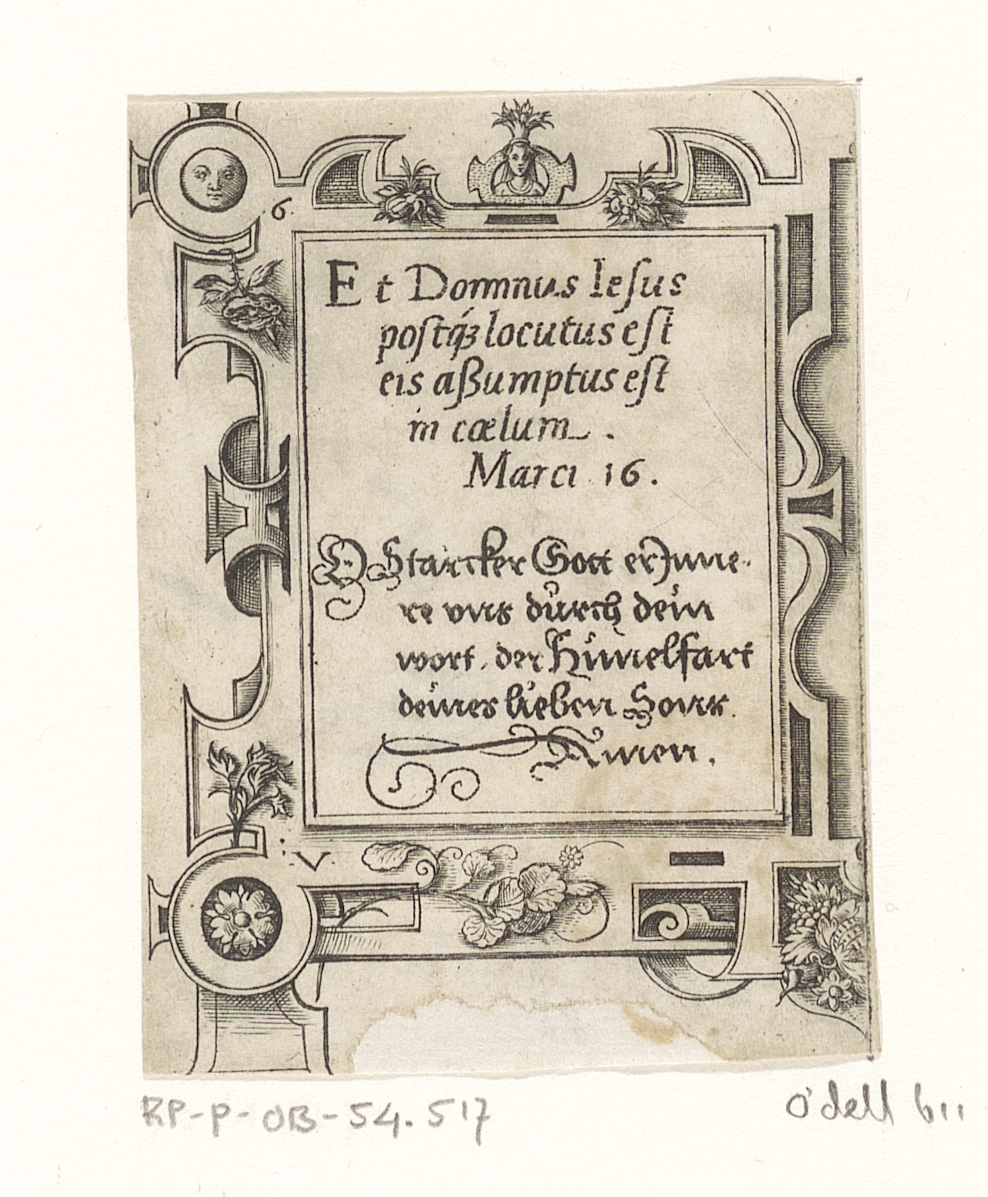 6.
Et Domnus Iesus
postq́ꝫ locutus est
eis aßumptus est
in cœlum.
Marci 16.
O Starcker Gott erJnne-
re vns durch dein
wort, der Him̄elfart
deines lieben Sons.
Amen.
V
RP-P-OB-54.517
O'dell b11